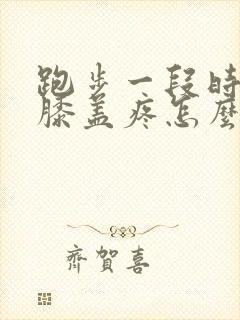 跑步一段時
膝盖疼怎麼
齊賀喜